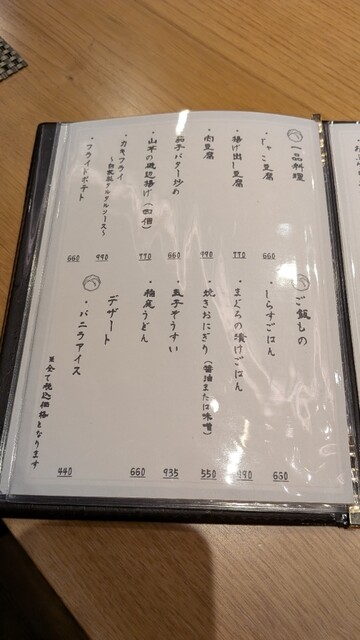 一品料理
・じゃこ豆腐 660
・揚げ出し豆腐 770
・肉豆腐 990
・茄子バター炒め 660
・山芋の磯辺揚げ（四個） 770
・カキフライ 990
～自家製タルタルソース～
・フライドポテト 660
ご飯もの
・しらすごはん 650
・まぐろの漬けごはん
・焼きおにぎり（醤油または味噌） 550
・玉子ぞうすい 935
・稲庭うどん 660
デザート
・バニラアイス 440
※全て税込価格となります